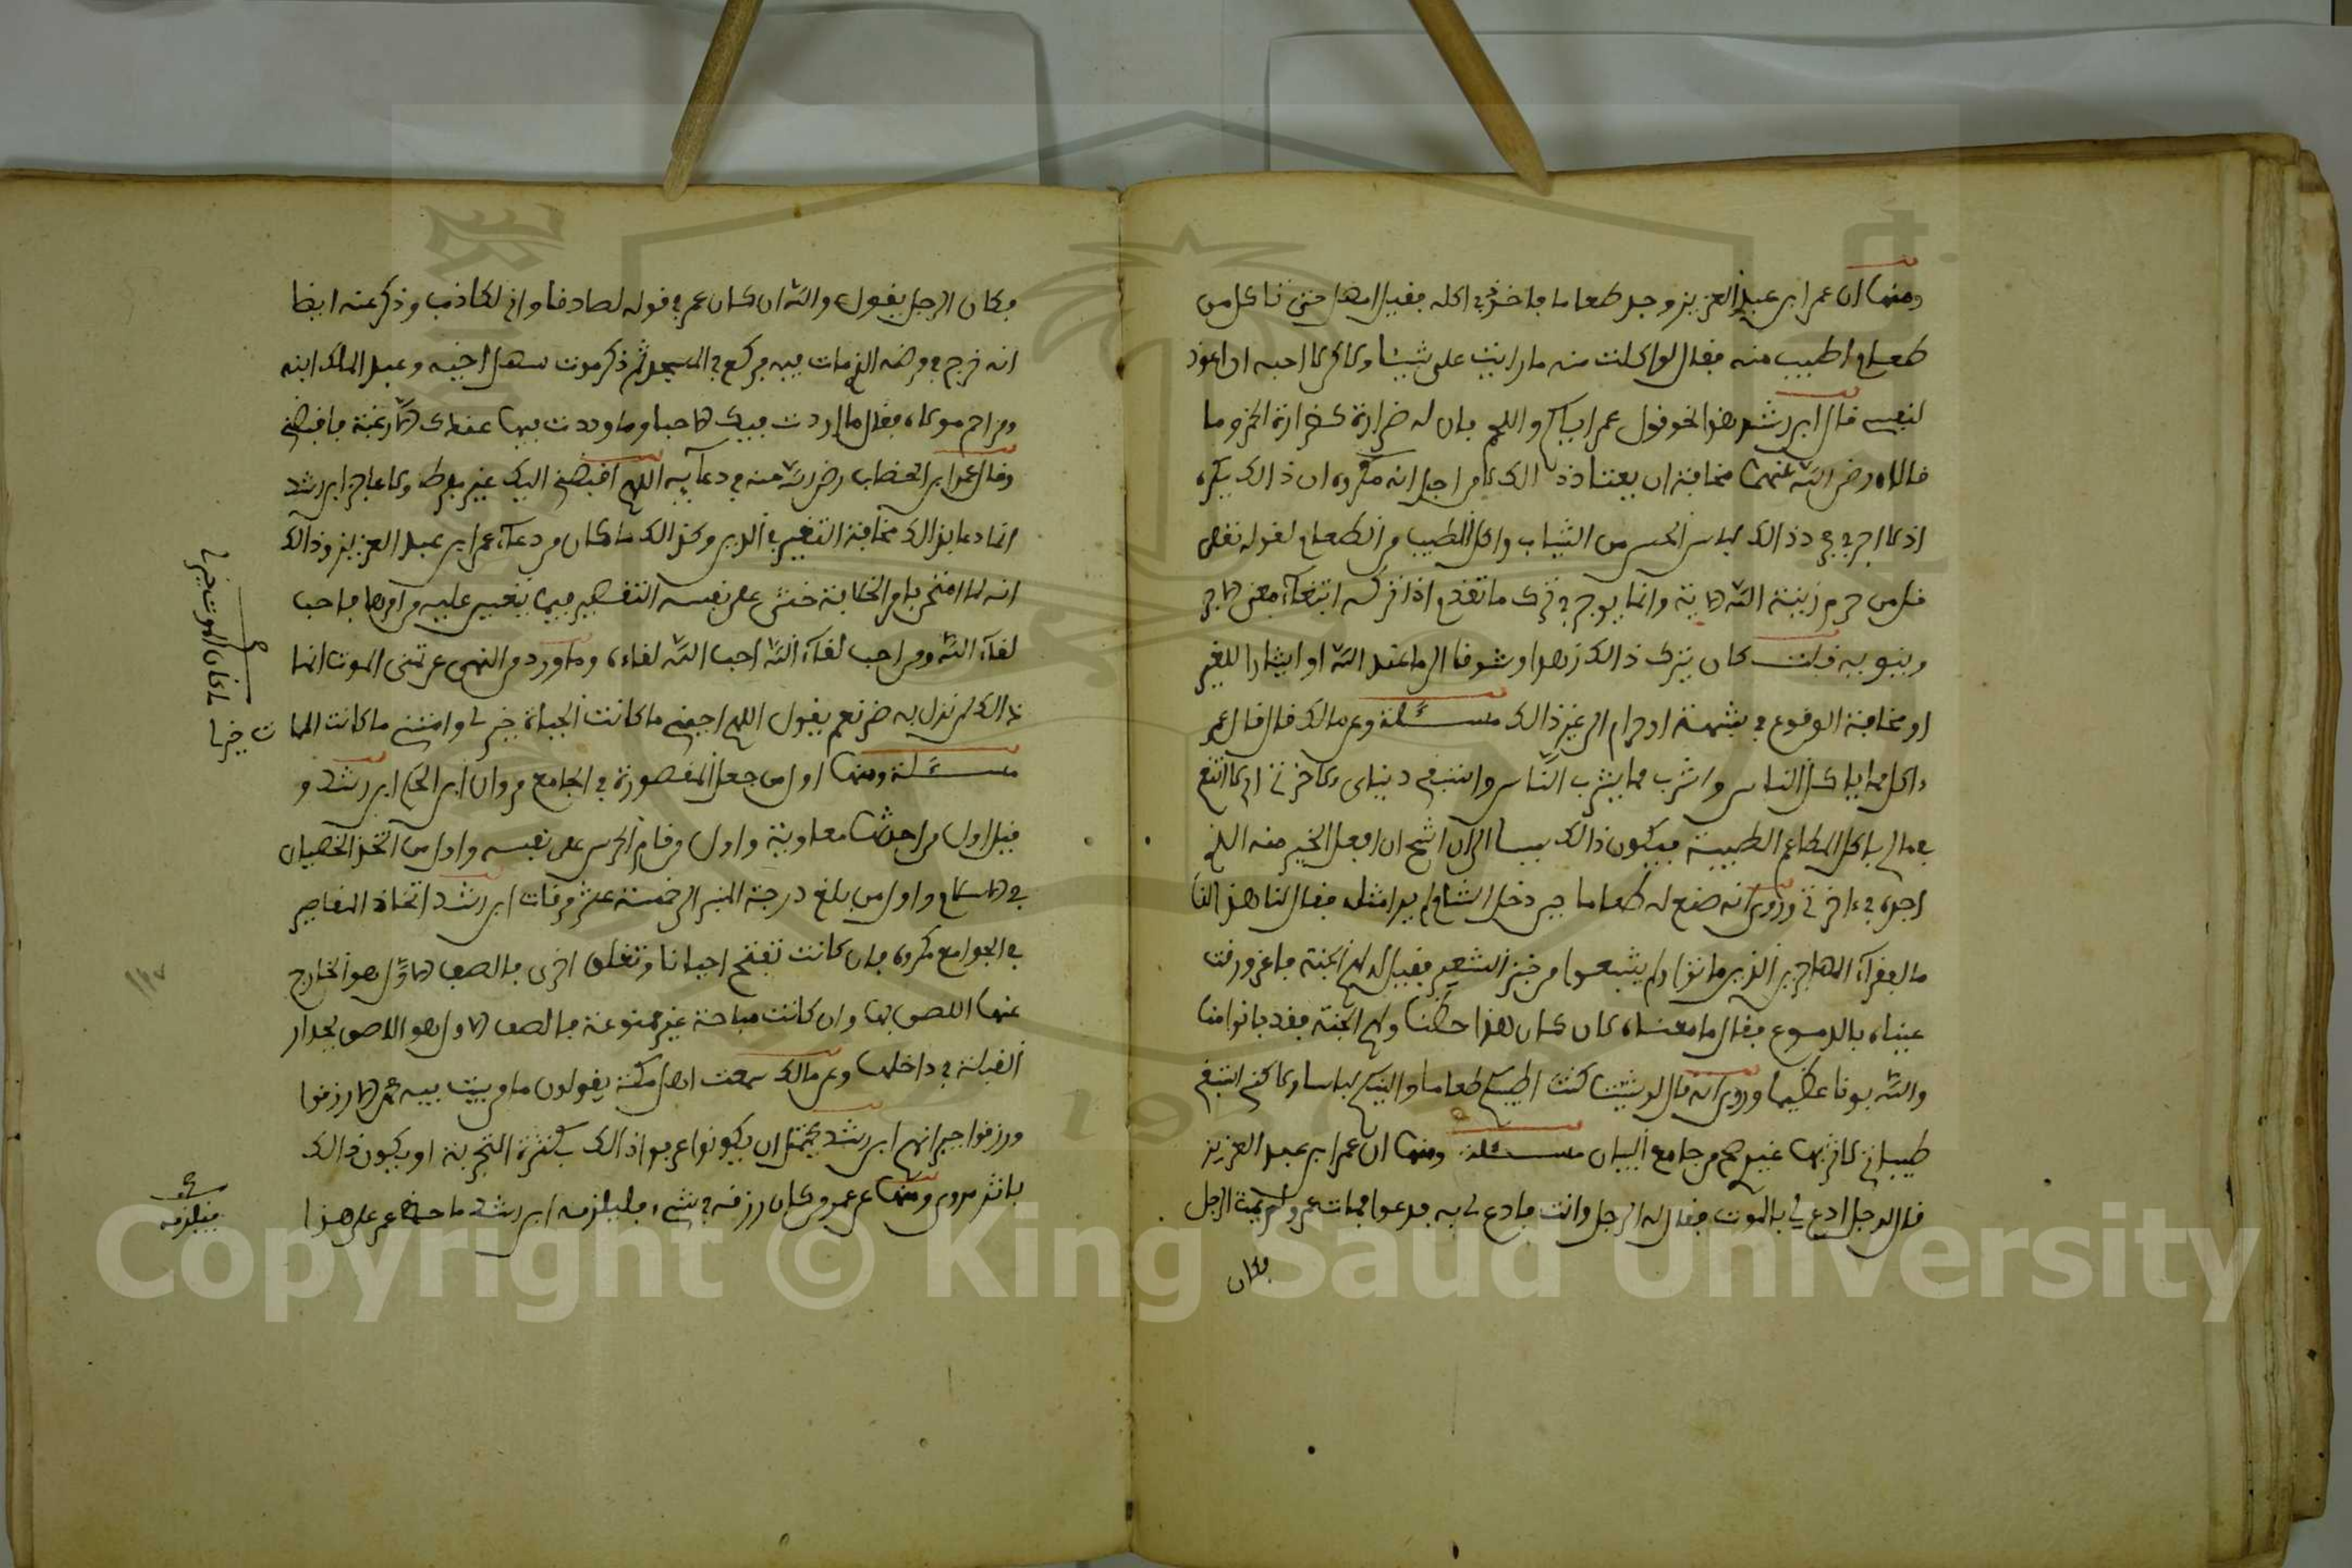 ومنها ان عمر ابن عبد العزيز وجد طعاما فاخذ في اكله فقيل امهل حتى تاكل من
طعام اطيب منه فقال لو اكلت منه ما رايت علي شيئا ولاكن لا احب ان اعود
لنفسي قال ابن رشد هذا نحو قول عمر اياكم واللحم فان له ضراوة كضراوة الخمر وما
قالاه رضي الله عنهما مخافة ان يعتاد ذالك لا من اجل انه مكروه ان ذالك يكره
اذ لا اجر في ذالك لباس الحسن من الثياب واكل الطيب من الطعام لقوله تعلى
قل من حرم زينة الله الاية وانما يوجر في ترك ما تقدم اذا تركه ابتغاء معنى الاجر
وينويه قلت كان يترك ذالك زهدا وشوقا الى ما عند الله او ايثارا للغير
او مخافة الوقوع في شبهة او حرام الى غير ذالك مسئلة وعن مالك قال قال عمر
ءاكل مما ياكل الناس واشرب مما يشرب الناس وانتفع دنياي ولاخرتي اي لا اتبع
في مالي باكل المطاعم الطيبة فيكون ذالك سببا الى ان اشح ان افعل الخير منه الذي
اجده في ءاخرتي وروي انه صنع له طعاما حين دخل الشام لم ير مثله فقال لنا هذا لنا
ما لفقراء المهاجرين الذين ماتوا ولم يشبعوا من خبز الشعير فقيل له لهم الجنة فاغرورقت
عيناه بالدموع فقال ما معناه لان كان هذا حظنا ولهم الجنة فقد بانوا منا
والله بونا عظيما وروي انه قال لو شيت كنت اطيبكم طعاما والينكم لباسا ولاكني ابتغي
طيباتي لاخرتها غيركم من جامع البيان مسئلة ومنها ان عمر ابن عبد العزيز
قال لرجل ادع لي بالموت فقال له الرجل وانت فادع لي به فدعوا فمات عمر ولم يمت الرجل
فكان
فكان الرجل يقول والله ان كان عمر في قوله لصادقا واني لكاذب وذكر عنه ايضا
انه خرج في مرضه الذي مات فيه فركع في المسجد ثم ذكر موت سهل اخيه وعبد الملك ابنه
ومزاحم مولاه فقال ما ازددت فيك الا حبا وما وددت فيما عندك الا رغبة فاقبضني
وقال عمر ابن الخطاب رضي الله عنه في دعآيه اللهم اقبضني اليك غير مفرط ولا عاجز ابن رشد
انما دعا بذالك مخافة التغيير في الدين وكذالك ما كان من دعآء عمر ابن عبد العزيز وذالك
انه لما امتحن بامر الخلافة خشي على نفسه التقصير فيما يتعين عليه من امرها فاحب
لقآء الله ومن احب لقآء الله احب الله لقاءه وما ورد من النهي عن تمني الموت انما
ذالك لمن نزل به ضر نعم يقول اللهم احيني ما كانت الحياة خير لي وامتني ما كانت الممات خيرا
مسئلة ومنها اول من جعل المقصورة في الجامع مروان ابن الحكم ابن رشد و
قيل اول من احدثها معاوية واول من قام الحرس على نفسه واول من اتخذ الخصيان
في الاسلام واول من بلغ درجة المنبر الى خمسة عشر مرقات ابن رشد اتخاذ المقاصير
في الجوامع مكروه فان كانت تفتح احيانا وتغلق اخرى فالصف الاول هو الخارج
عنها اللاصق بها وان كانت مباحة غير ممنوعة فالصف الاول هو اللاصق بجدار
القبلة في داخلها وعن مالك سمعت اهل مكة يقولون ما من بيت فيه محمد الا رزقوا
ورزقوا جيرانهم ابن رشد يحتمل ان يكونوا عرفوا ذالك بكثرة التجربة او يكون ذالك
باثر مروي ومنها عن عمر من كان رزقه في شيء فليلزمه ابن رشد ما حض عمر على هذا
ما كان الموت خيرا
فيلزمه